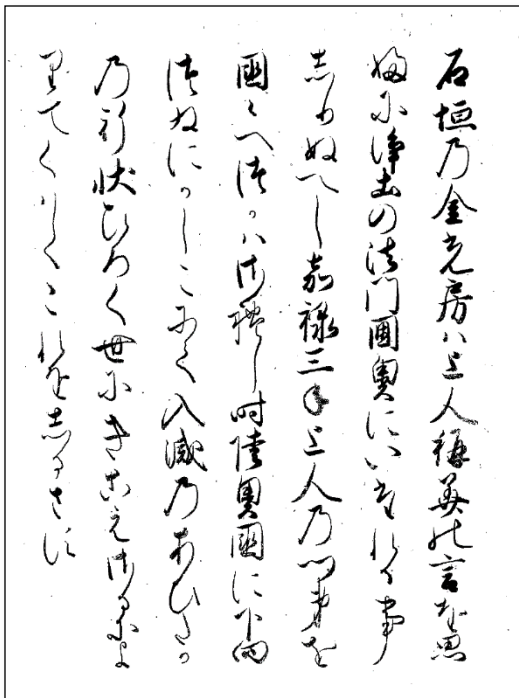 石垣乃金光房ハ上人稱美の言を思
ふに浄土の法門閫奥にいたれる事
しりぬへし嘉禄三年上人乃門弟を
國々へつかハされし時陸奥國に下向
つゐにかしこにて入滅のあひた
乃行状ひろく世にきこえさるによ
りてくはしくこれをしるさす